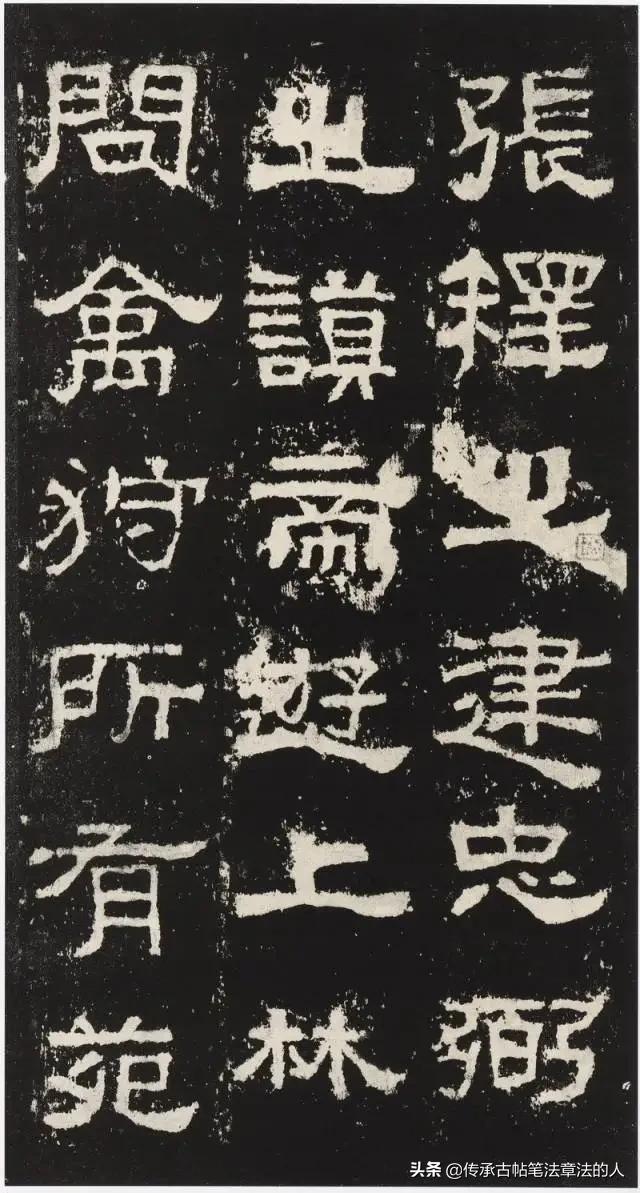 張釋之建忠弼
之謨帝遊上林
問禽狩所有苑
头条 @传承古帖笔法章法的人